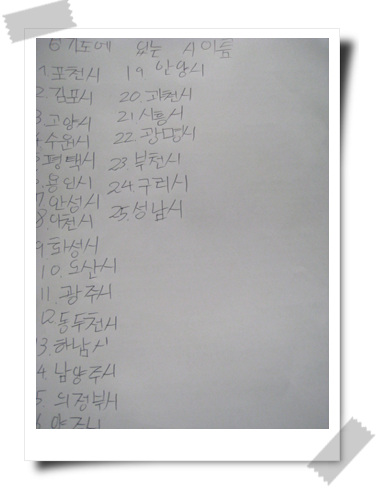 경기도에 있는 시 이름
1. 포천시
2. 김포시
3. 고양시
4. 수원시
5. 평택시
6. 용인시
7. 안성시
8. 이천시
9. 화성시
10. 오산시
11. 광주시
12. 동두천시
13. 하남시
14. 남양주시
5. 의정부시
6. 양주시
19. 안양시
20. 과천시
21. 시흥시
22. 광명시
23. 부천시
24. 구리시
25. 성남시